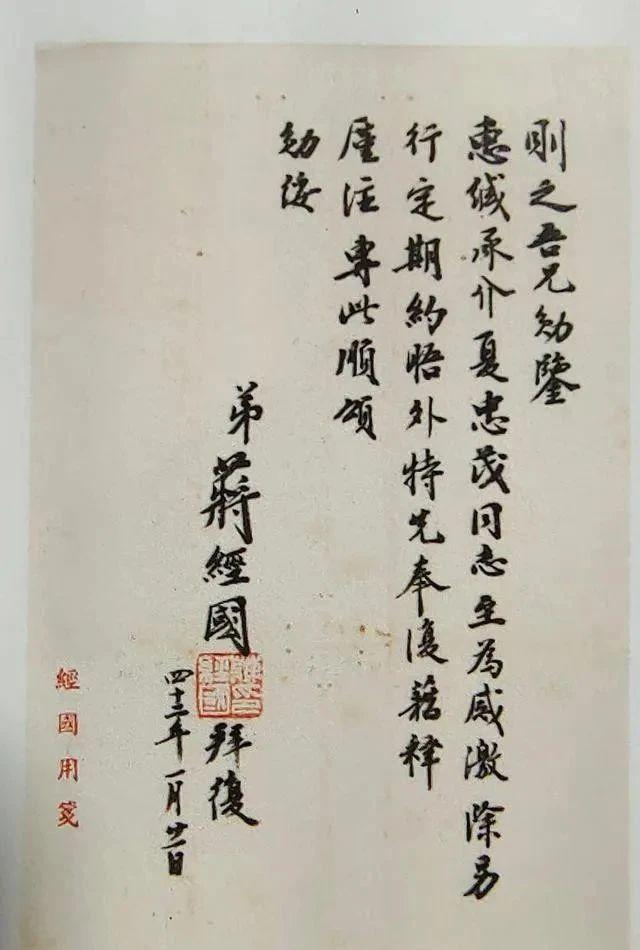 則之吾兄勛鑒
惠緘承介夏惠茂同志至為感激除另
行定期約晤外特先奉復藉釋
廑注專此順頌
勛綏
弟蔣經國拜復
四十三年一月廿一日
經國用箋